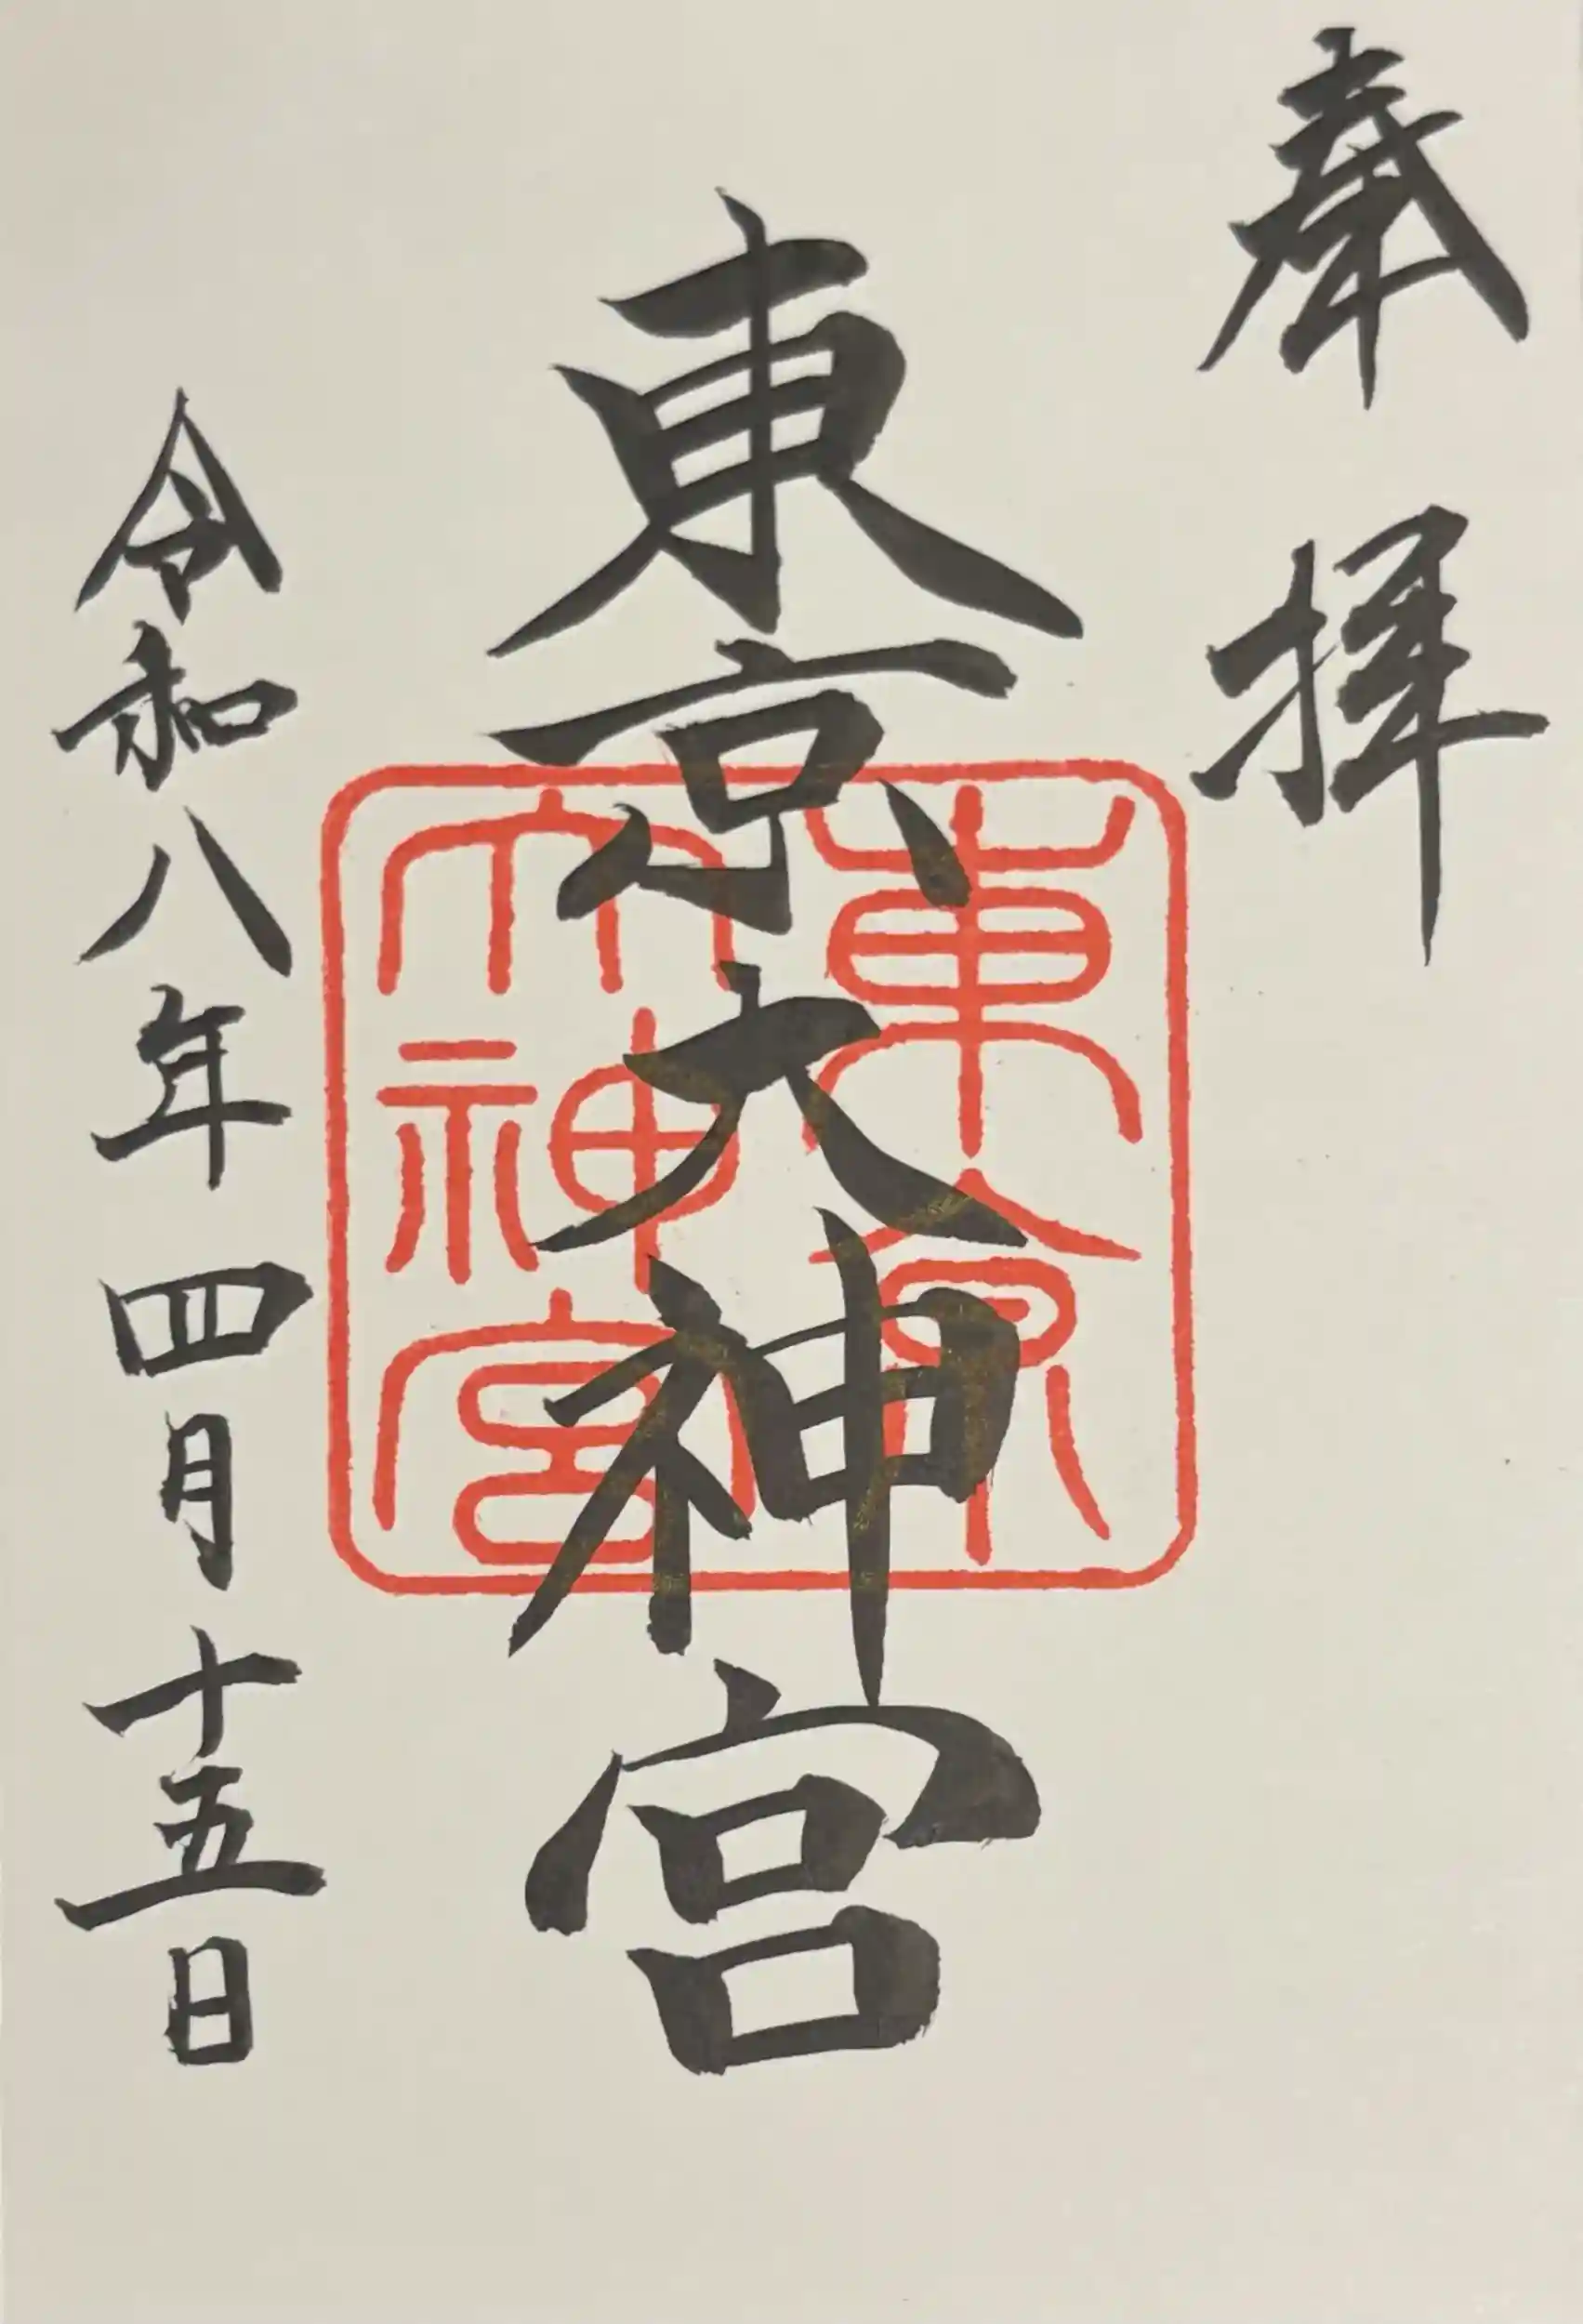 奉拝
東京大神宮
東京
大神宮
令和八年四月十五日